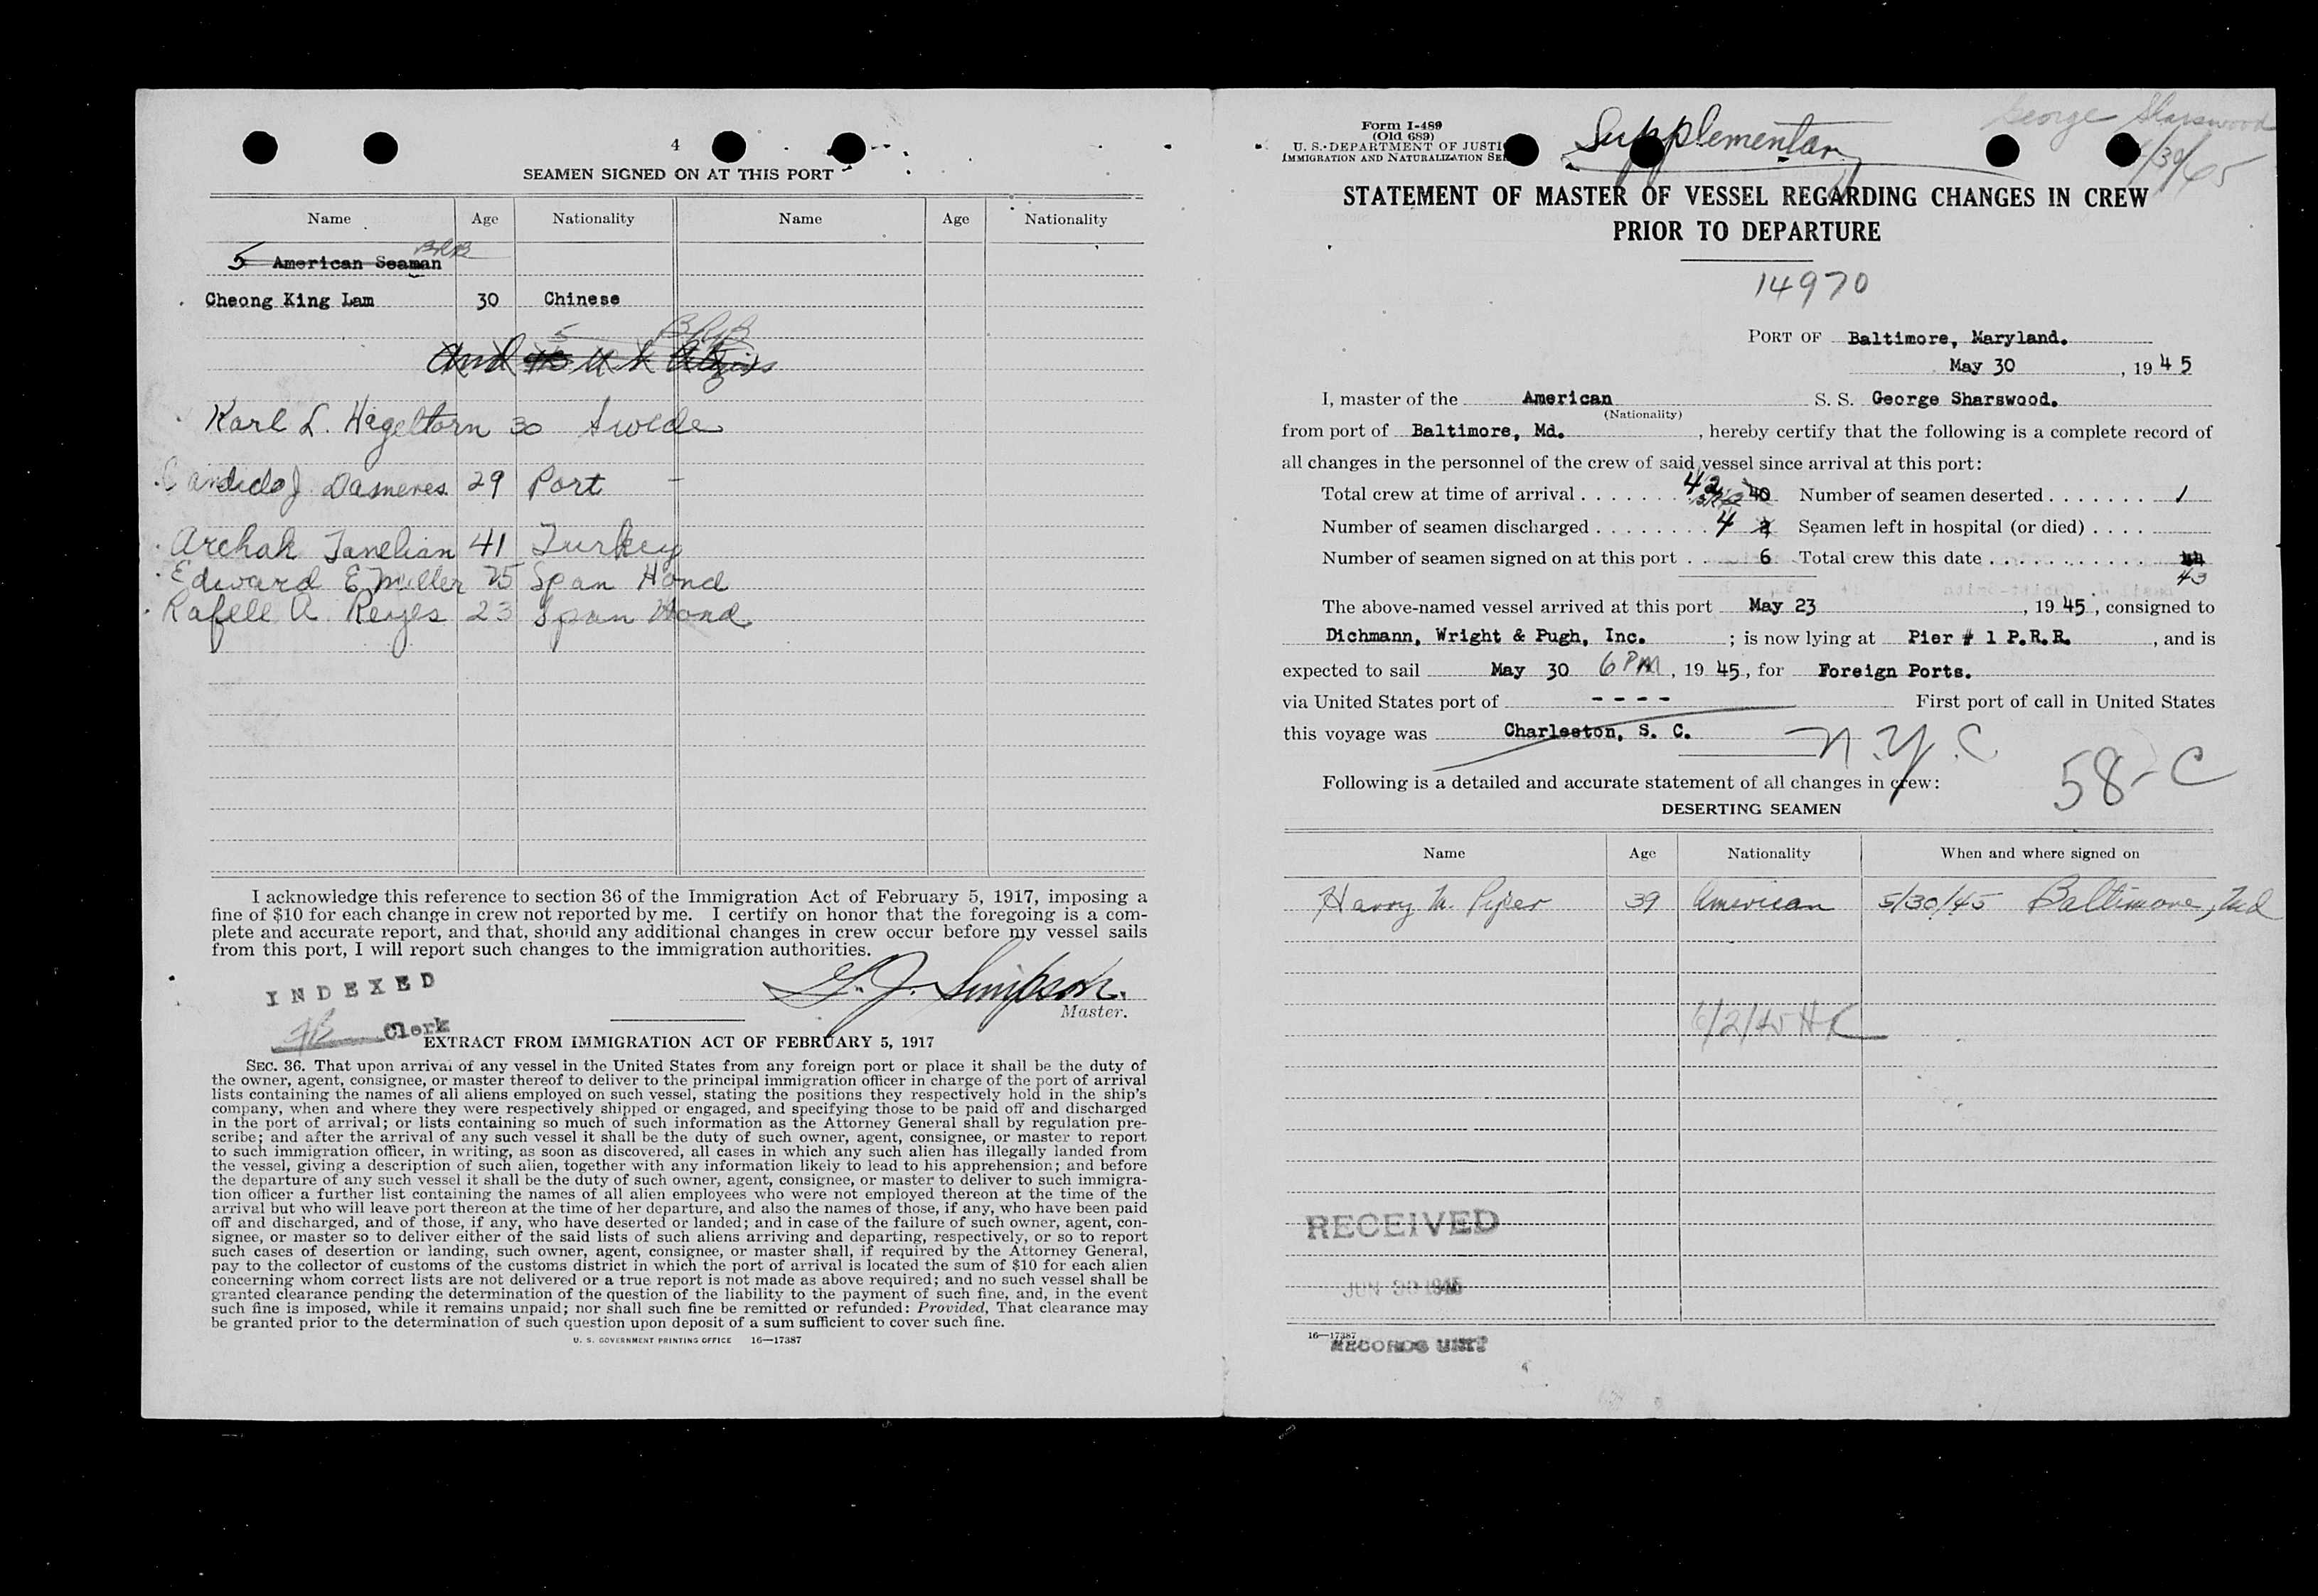 4
SEAMEN SIGNED ON AT THIS PORT
Name Age Nationality Name Age Nationality
BRB
5 American Seaman
Cheong King Lam 30 Chinese
5 BRB
And
Karl L. Hageltorn 30 Swede
Candido J. Dasneves 29 Port
Archak Janelian 41 Turkey
Edward E Miller 25 Span Hond
Rafell A. Reyes 23 Span Hond
I acknowledge this reference to section 36 of the Immigration Act of February 5, 1917, imposing a
fine of $10 for each change in crew not reported by me. I certify on honor that the foregoing is a com-
plete and accurate report, and that, should any additional changes in crew occur before my vessel sails
from this port, I will report such changes to the immigration authorities.
INDEXED
Clerk
Simpson.
Master.
EXTRACT FROM IMMIGRATION ACT OF FEBRUARY 5, 1917
SEC. 36. That upon arrival of any vessel in the United States from any foreign port or place it shall be the duty of
the owner, agent, consignee, or master thereof to deliver to the principal immigration officer in charge of the port of arrival
lists containing the names of all aliens employed on such vessel, stating the positions they respectively hold in the ship's
company, when and where they were respectively shipped or engaged, and specifying those to be paid off and discharged
in the port of arrival; or lists containing so much of such information as the Attorney General shall by regulation pre-
scribe; and after the arrival of any such vessel it shall be the duty of such owner, agent, consignee, or master to report
to such immigration officer, in writing, as soon as discovered, all cases in which any such alien has illegally landed from
the vessel, giving a description of such alien, together with any information likely to lead to his apprehension; and before
the departure of any such vessel it shall be the duty of such owner, agent, consignee, or master to deliver to such immigra-
tion officer a further list containing the names of all alien employees who were not employed thereon at the time of the
arrival but who will leave port thereon at the time of her departure, and also the names of those, if any, who have been paid
off and discharged, and of those, if any, who have deserted or landed; and in case of the failure of such owner, agent, con-
signee, or master so to deliver either of the said lists of such aliens arriving and departing, respectively, or so to report
such cases of desertion or landing, such owner, agent, consignee, or master shall, if required by the Attorney General,
pay to the collector of customs of the customs district in which the port of arrival is located the sum of $10 for each alien
concerning whom correct lists are not delivered or a true report is not made as above required; and no such vessel shall be
granted clearance pending the determination of the question of the liability to the payment of such fine, and, in the event
such fine is imposed, while it remains unpaid; nor shall such fine be remitted or refunded: Provided, That clearance may
be granted prior to the determination of such question upon deposit of a sum sufficient to cover such fine.
U. S. GOVERNMENT PRINTING OFFICE 16—17387
Form I-489
(Old 689)
U. S. DEPARTMENT OF JUSTI
IMMIGRATION AND NATURALIZATION SE
Supplementary
George Sharswood
STATEMENT OF MASTER OF VESSEL REGARDING CHANGES IN CREW
PRIOR TO DEPARTURE
14970
PORT OF Baltimore, Maryland.
May 30, 1945
I, master of the American S. S. George Sharswood.
(Nationality)
from port of Baltimore, Md., hereby certify that the following is a complete record of
all changes in the personnel of the crew of said vessel since arrival at this port:
Total crew at time of arrival . . . . . . . 42 40 Number of seamen deserted . . . . . . . . 1
Number of seamen discharged . . . . . . . . 4 Seamen left in hospital (or died) . . . .
Number of seamen signed on at this port . . 6 Total crew this date . . . . . . . . . . . .
43
The above-named vessel arrived at this port May 23, 1945, consigned to
Dichmann, Wright & Pugh, Inc. ; is now lying at Pier # 1 P.R.R., and is
expected to sail May 30 6 PM, 1945, for Foreign Ports.
via United States port of - - - - First port of call in United States
this voyage was Charleston, S. C. N.Y.C
Following is a detailed and accurate statement of all changes in crew:
58-C
DESERTING SEAMEN
Name Age Nationality When and where signed on
Harry M. Piper 39 American 5/30/45 Baltimore, Md
6/2/45 HK
RECEIVED
JUN 30 1945
16—17387
RECORDS UNIT